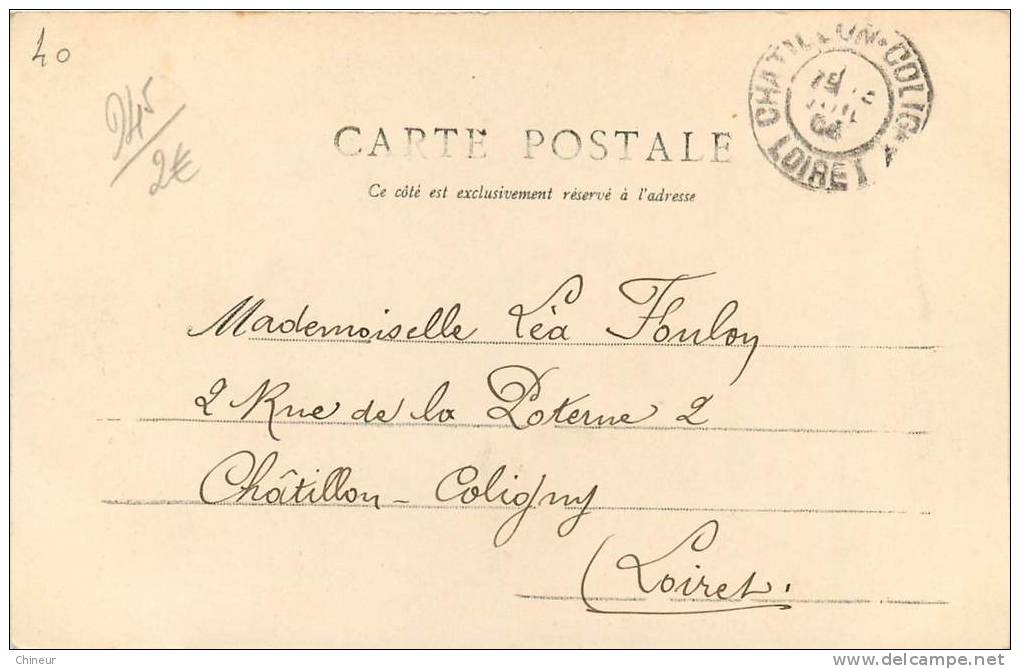 40
245
2€
CHATILLON-COLIGNY
LOIRET
CARTE POSTALE
Ce côté est exclusivement réservé à l'adresse
Mademoiselle Léa Foulon
2 Rue de la Poterne 2
Châtillon-Coligny
(Loiret.
Chineur
delcampe.net